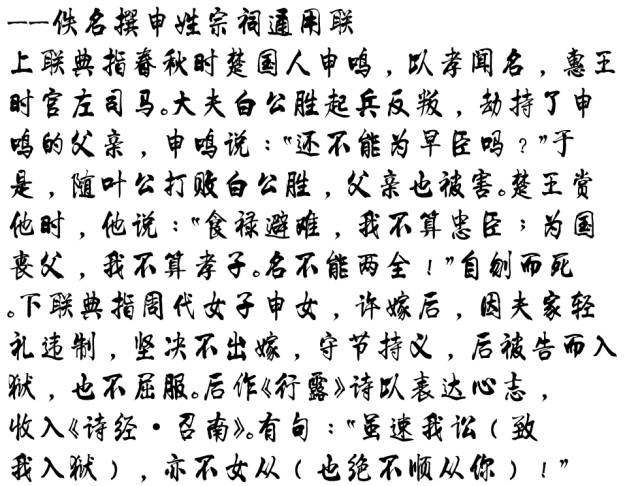 ——佚名撰申姓宗祠通用联
上联典指春秋时楚国人申鸣，以孝闻名，惠王
时官左司马。大夫白公胜起兵反叛，劫持了申
鸣的父亲，申鸣说：“还不能为早臣吗？”于
是，随叶公打败白公胜，父亲也被害。楚王赏
他时，他说：“食禄避难，我不算忠臣；为国
丧父，我不算孝子。名不能两全！”自刎而死
。下联典指周代女子申女，许嫁后，因夫家轻
礼违制，坚决不出嫁，守节持义，后被告而入
狱，也不屈服。后作《行露》诗以表达心志，
收入《诗经·召南》。有句：“虽速我讼（致
我入狱），亦不女从（也绝不顺从你）！”